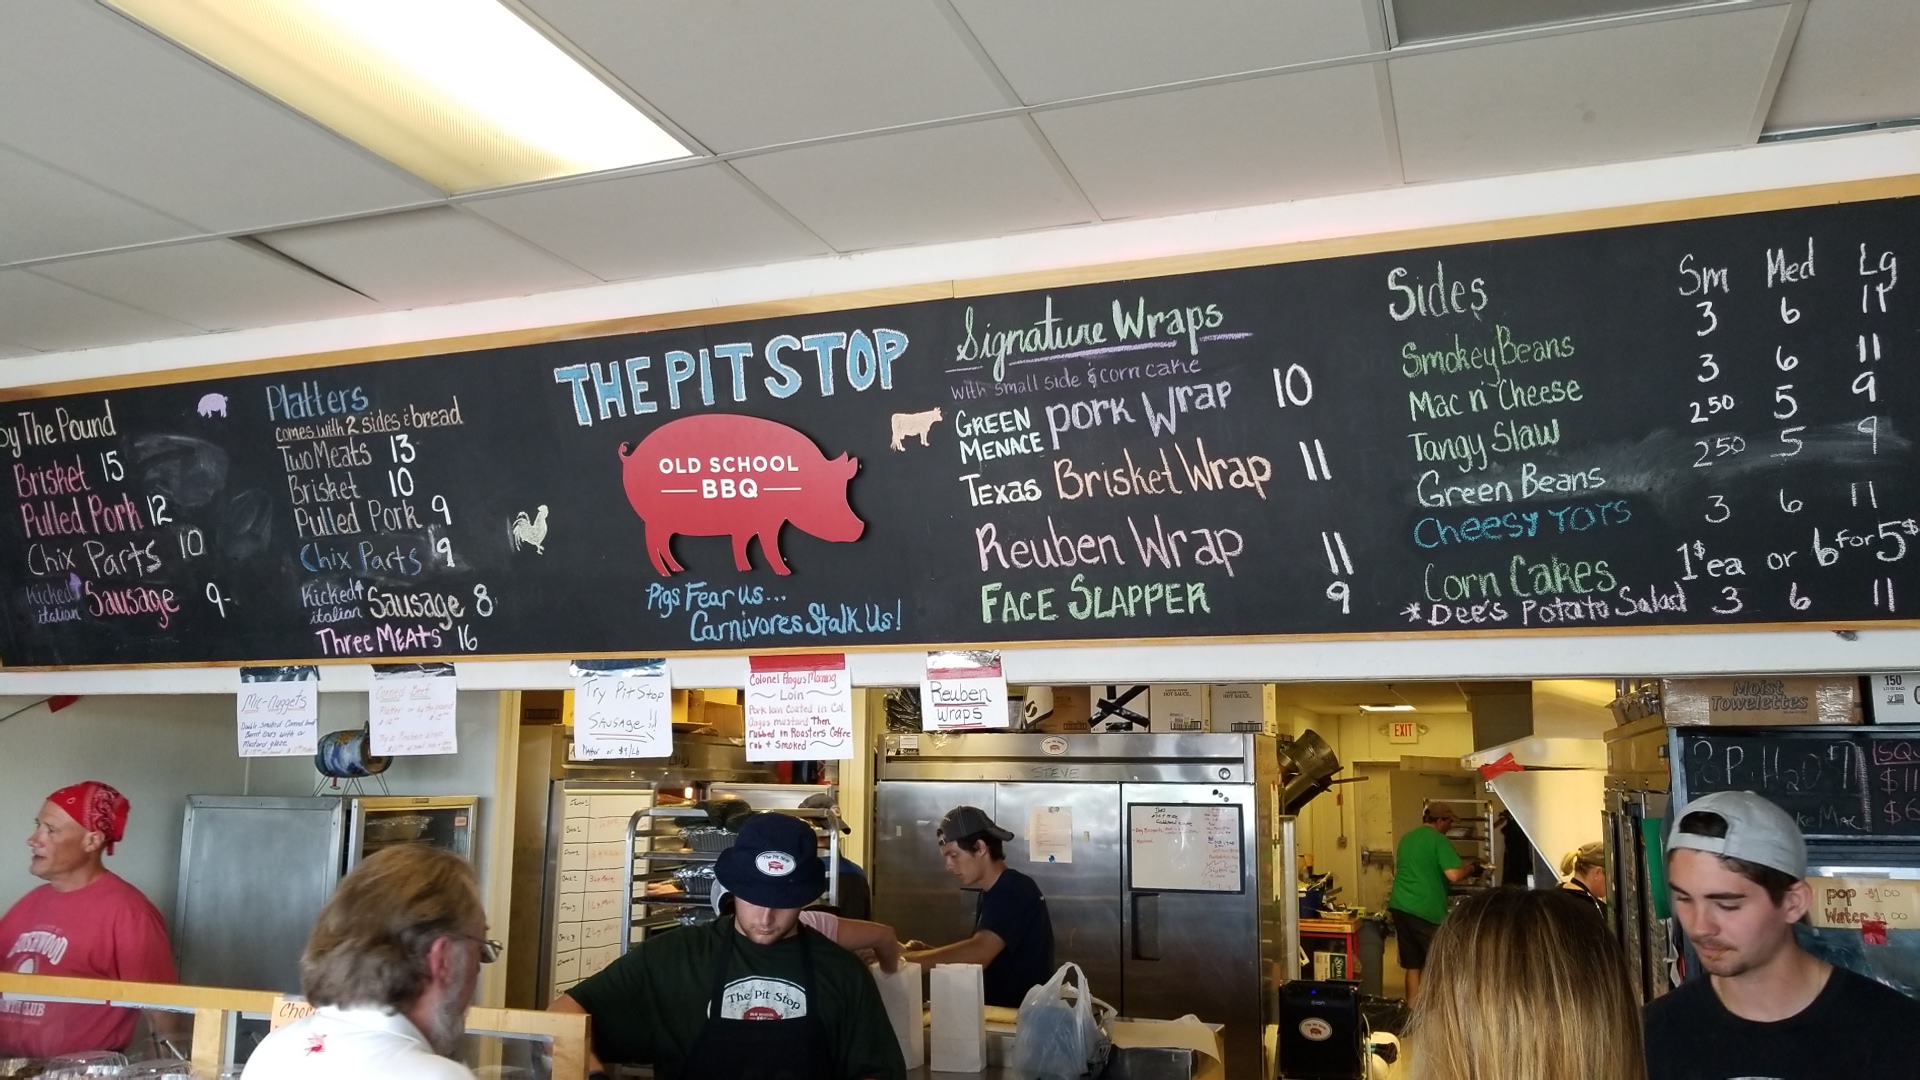 By The Pound
Brisket 15
Pulled Pork 12
Chix Parts 10
Kicked↑ italian Sausage 9-
Platters
comes with 2 sides & bread
Two Meats 13
Brisket 10
Pulled Pork 9
Chix Parts 9
Kicked↑ italian Sausage 8
Three MEATS 16
THE PIT STOP
OLD SCHOOL
BBQ
Pigs Fear Us...
Carnivores Stalk Us!
Signature Wraps
with small side & corn cake
GREEN MENACE pork Wrap 10
Texas Brisket Wrap 11
Reuben Wrap 11
FACE SLAPPER 9
Sides Sm Med Lg
Smokey Beans 3 6 11
Mac n' Cheese 3 6 11
Tangy Slaw 2 50 5 9
Green Beans 2 50 5 9
Cheesy TOTS 3 6 11
Corn Cakes 1$ ea or 6 for 5$
*Dee's Potato Salad 3 6 11
Mic-Nuggets
Double Smoked Corned beef
Burnt Ends with a
Mustard glaze
Corned Beef
Platter or by the pound
Try Pit Stop
SAUSAGE!!
Platter or $9/Lb
Colonel Angus Morning
Loin
Pork loin Coated in Col.
Angus mustard Then
rubbed in Roasters Coffee
rub + Smoked
Reuben
Wraps
HOT SAUCE
STEVE
EXIT
Moist
Towelettes
150
The Pit Stop
The Pit Stop
OLD SCHOOL
CLUB
pop $1.00
Water $1.00